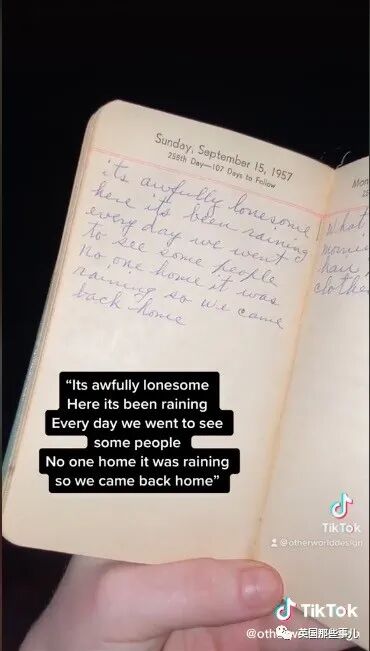 Sunday, September 15, 1957
258th Day—107 Days to Follow
its awfully lonesome
here its been raining
every day we went
to see some people
no one home it was
raining so we came
back home
Mon
What
mornin
hair,
clothe
“Its awfully lonesome
Here its been raining
Every day we went to see
some people
No one home it was raining
so we came back home”
TikTok
@otherworlddesign
TikTok
英国那些事儿